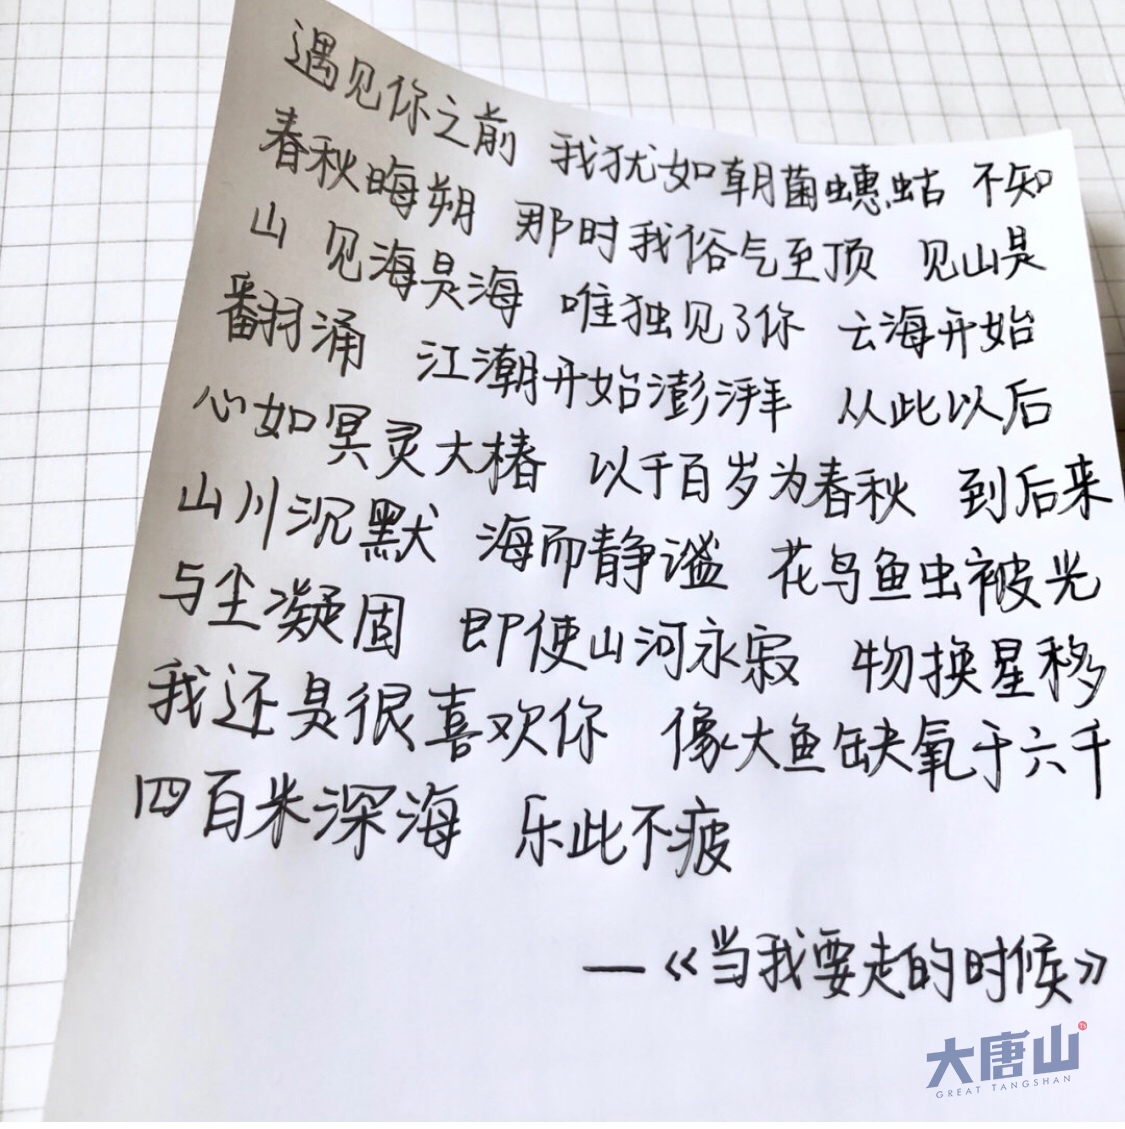 遇见你之前 我犹如朝菌蟪蛄 不知
春秋晦朔 那时我俗气至顶 见山是
山 见海是海 唯独见了你 云海开始
翻涌 江潮开始澎湃 从此以后
心如冥灵大椿 以千百岁为春秋 到后来
山川沉默 海面静谧 花鸟鱼虫被光
与尘凝固 即使山河永寂 物换星移
我还是很喜欢你 像大鱼缺氧于六千
四百米深海 乐此不疲
—《当我要走的时候》
大唐山
GREAT TANGSHAN